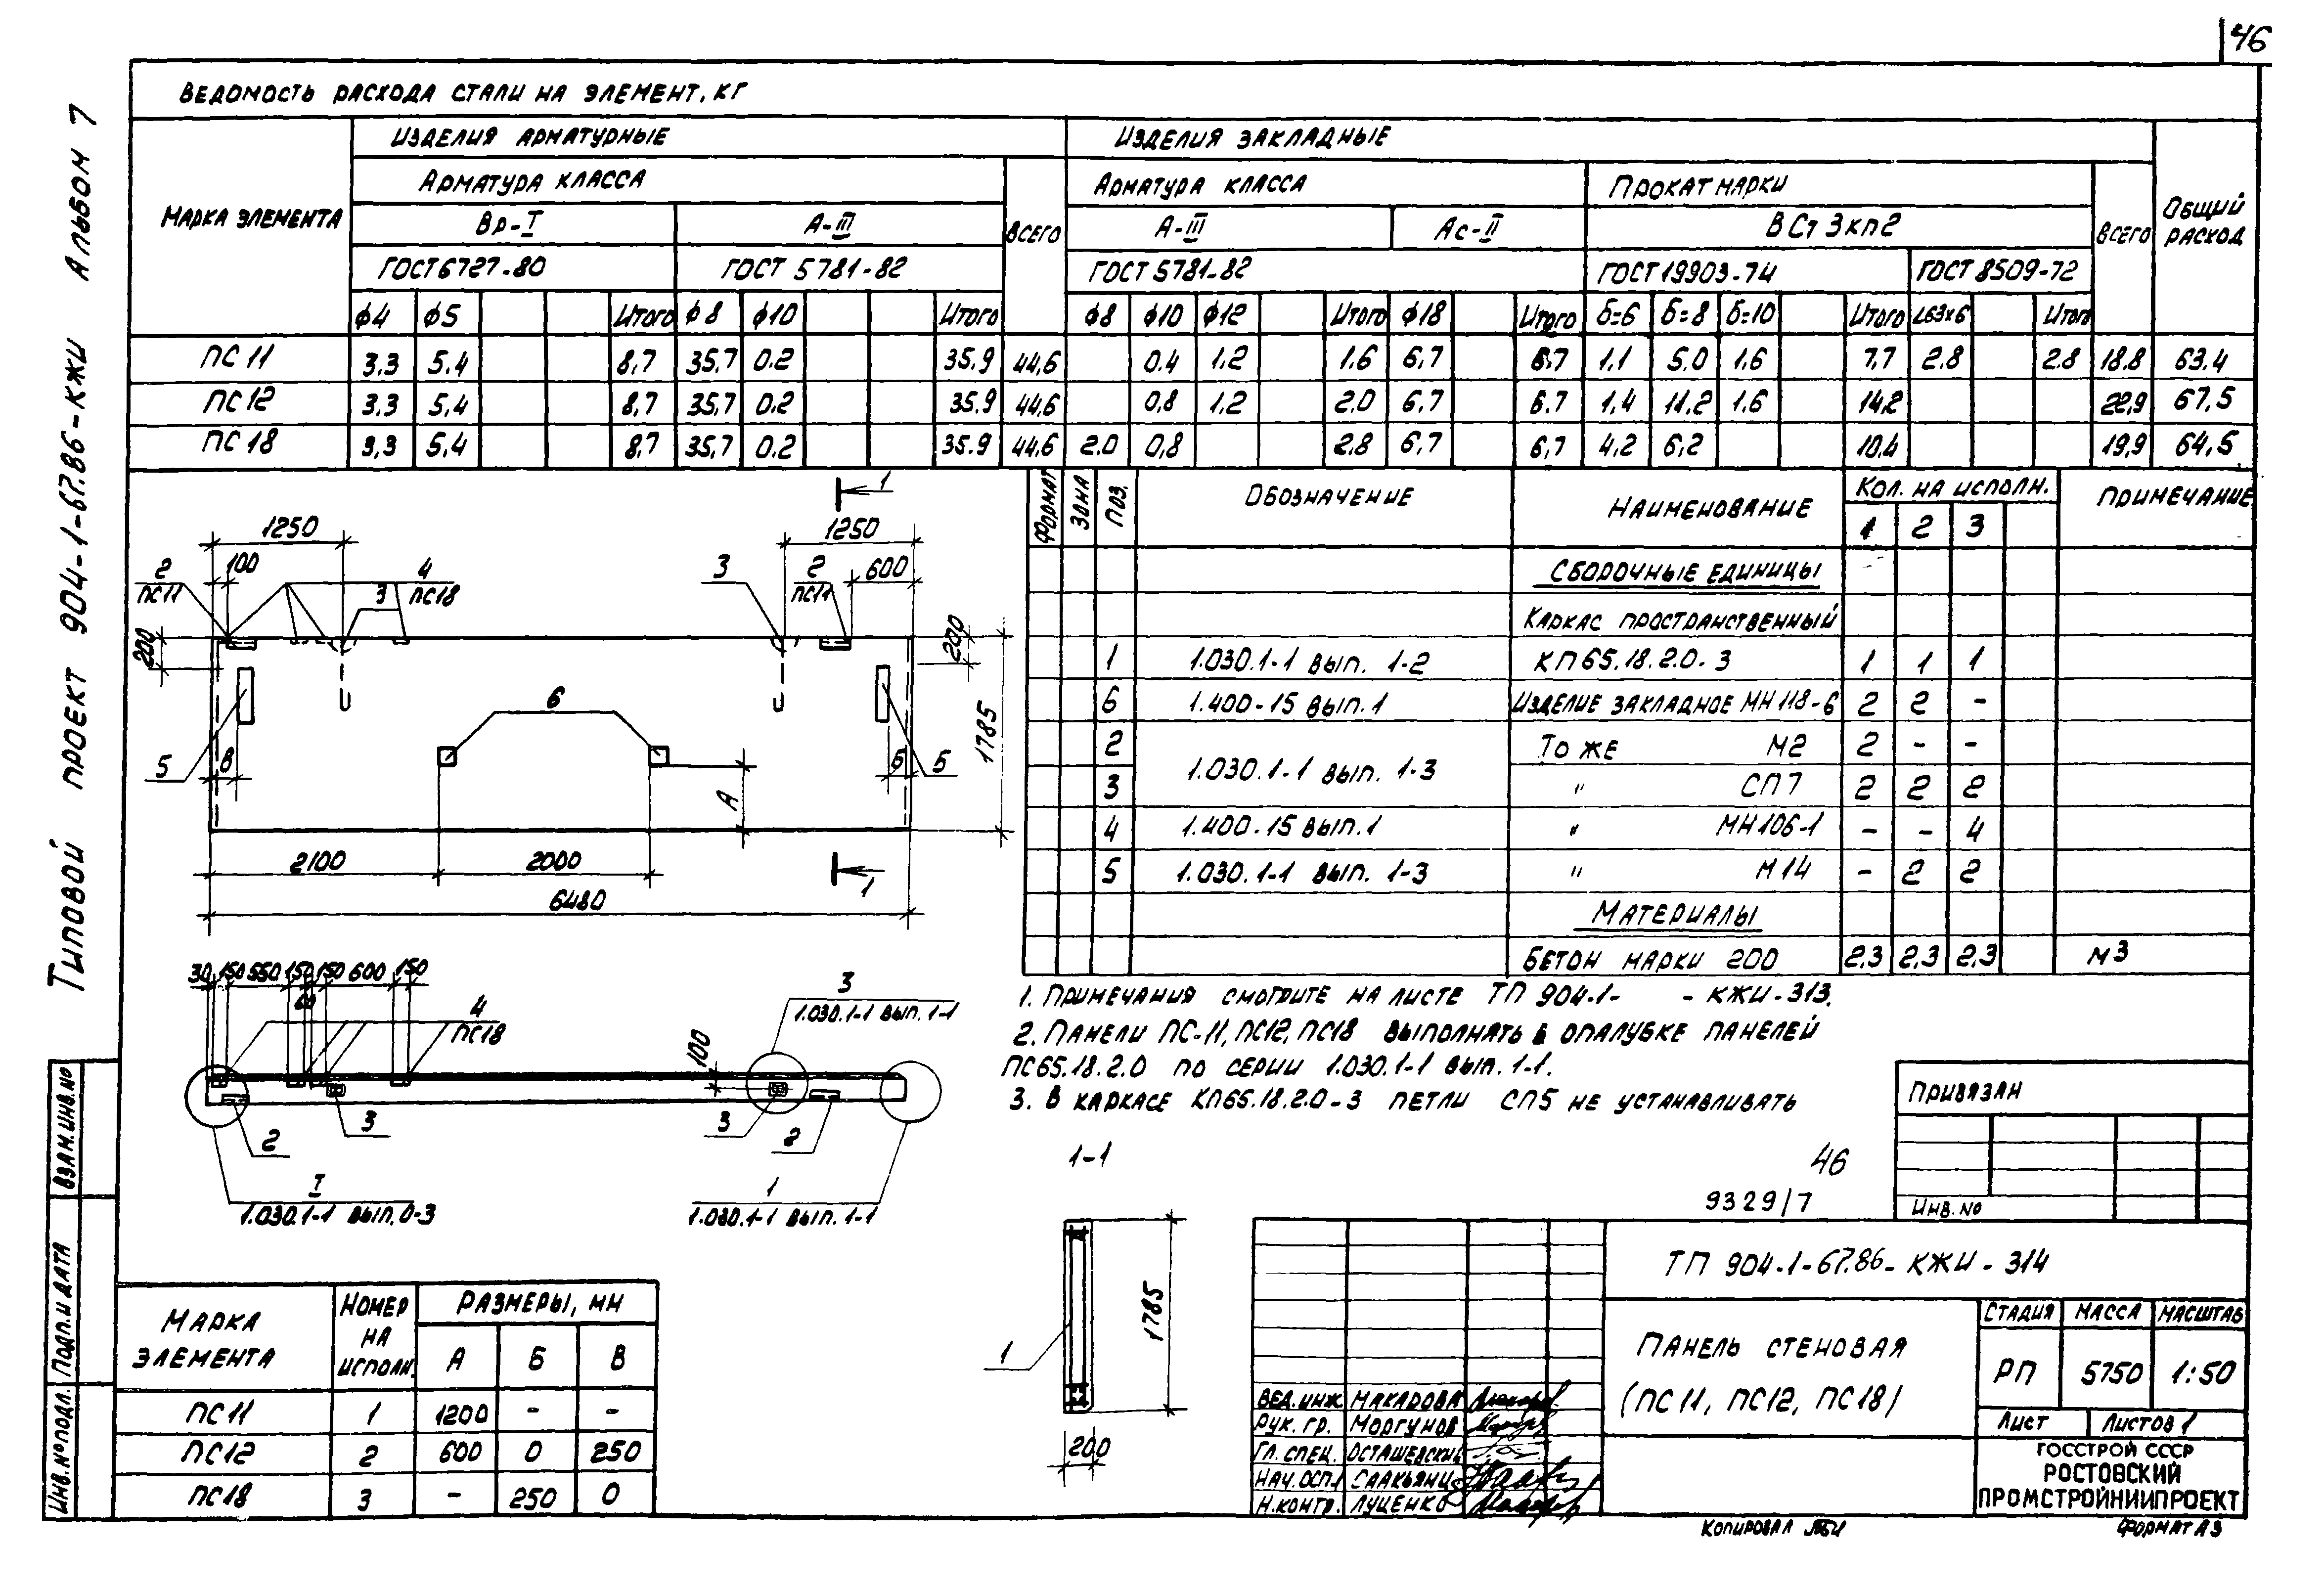 46
Типовой проект 904-1-67.86-КЖИ Альбом 7
Ведомость расхода стали на элемент, кг
Марка элемента
Изделия арматурные
Изделия закладные
Общий расход
Арматура класса
Всего
Арматура класса
Прокат марки
Всего
Вр-I
А-III
А-III
Ас-II
ВСт3кп2
ГОСТ 6727-80
ГОСТ 5781-82
ГОСТ 5781-82
ГОСТ 19903-74
ГОСТ 8509-72
ф4 ф5 Итого ф8 ф10 Итого ф8 ф10 ф12 Итого ф18 Итого б=6 б=8 б=10 Итого L63х6 Итого
ПС 11 3,3 5,4 8,7 35,7 0.2 35.9 44,6 0.4 1,2 1.6 6,7 6.7 1,1 5.0 1.6 7,7 2.8 2.8 18.8 63.4
ПС 12 3,3 5,4 8,7 35,7 0.2 35.9 44,6 0,8 1,2 2.0 6,7 6.7 1,4 11,2 1.6 14,2 22,9 67,5
ПС 18 3,3 5,4 8,7 35,7 0.2 35.9 44,6 2.0 0,8 2,8 6,7 6,7 4,2 6,2 10,4 19,9 64,5
Формат
Зона
Поз.
Обозначение
Наименование
Кол. на исполн.
Примечание
1 2 3
Сборочные единицы
Каркас пространственный
1 1.030.1-1 вып. 1-2 КП65.18.2.0-3 1 1 1
6 1.400-15 вып.1 Изделие закладное МН 118-6 2 2 -
2 То же М2 2 - -
1.030.1-1 вып. 1-3
3 " СП7 2 2 2
4 1.400-15 вып.1 " МН106-1 - - 4
5 1.030.1-1 вып. 1-3 " М14 - 2 2
Материалы
Бетон марки 200 2,3 2,3 2,3 м3
1
1250
1250
2
ПС11
100
4
ПС18
3
3
2
ПС11
600
200
200
6
5
В
Б
5
А
1785
2100
2000
1
6480
30 150 550 150 150 600 150
4
ПС18
3
1.030.1-1 вып. 1-1
100
2
3
3
2
I
1.030.1-1 вып. 0-3
1
1.030.1-1 вып. 1-1
1. Примечания смотрите на листе ТП 904-1- - КЖИ-313.
2. Панели ПС-11, ПС12, ПС18 выполнять в опалубке панелей
ПС65.18.2.0 по серии 1.030.1-1 вып. 1-1.
3. В каркасе КП65.18.2.0-3 петли СП5 не устанавливать
1-1
1
1785
200
46
9329/7
Привязан
Инв. №
Марка элемента
Номер на исполн.
Размеры, мм
А Б В
ПС11 1 1200 - -
ПС12 2 600 0 250
ПС18 3 - 250 0
Взам.инв.№
Подп. и дата
Инв.№ подл.
ТП 904-1-67.86-КЖИ-314
Панель стеновая
(ПС 11, ПС12, ПС18)
Стадия Масса Масштаб
РП 5750 1:50
Лист Листов 1
Вед. инж. Макарова
Рук. гр. Моргунов
Гл. спец. Осташевский
Нач. осп.1 Саакьянц
Н.контр. Луценко
ГОССТРОЙ СССР
РОСТОВСКИЙ
ПРОМСТРОЙНИИПРОЕКТ
Копировал
Формат А3